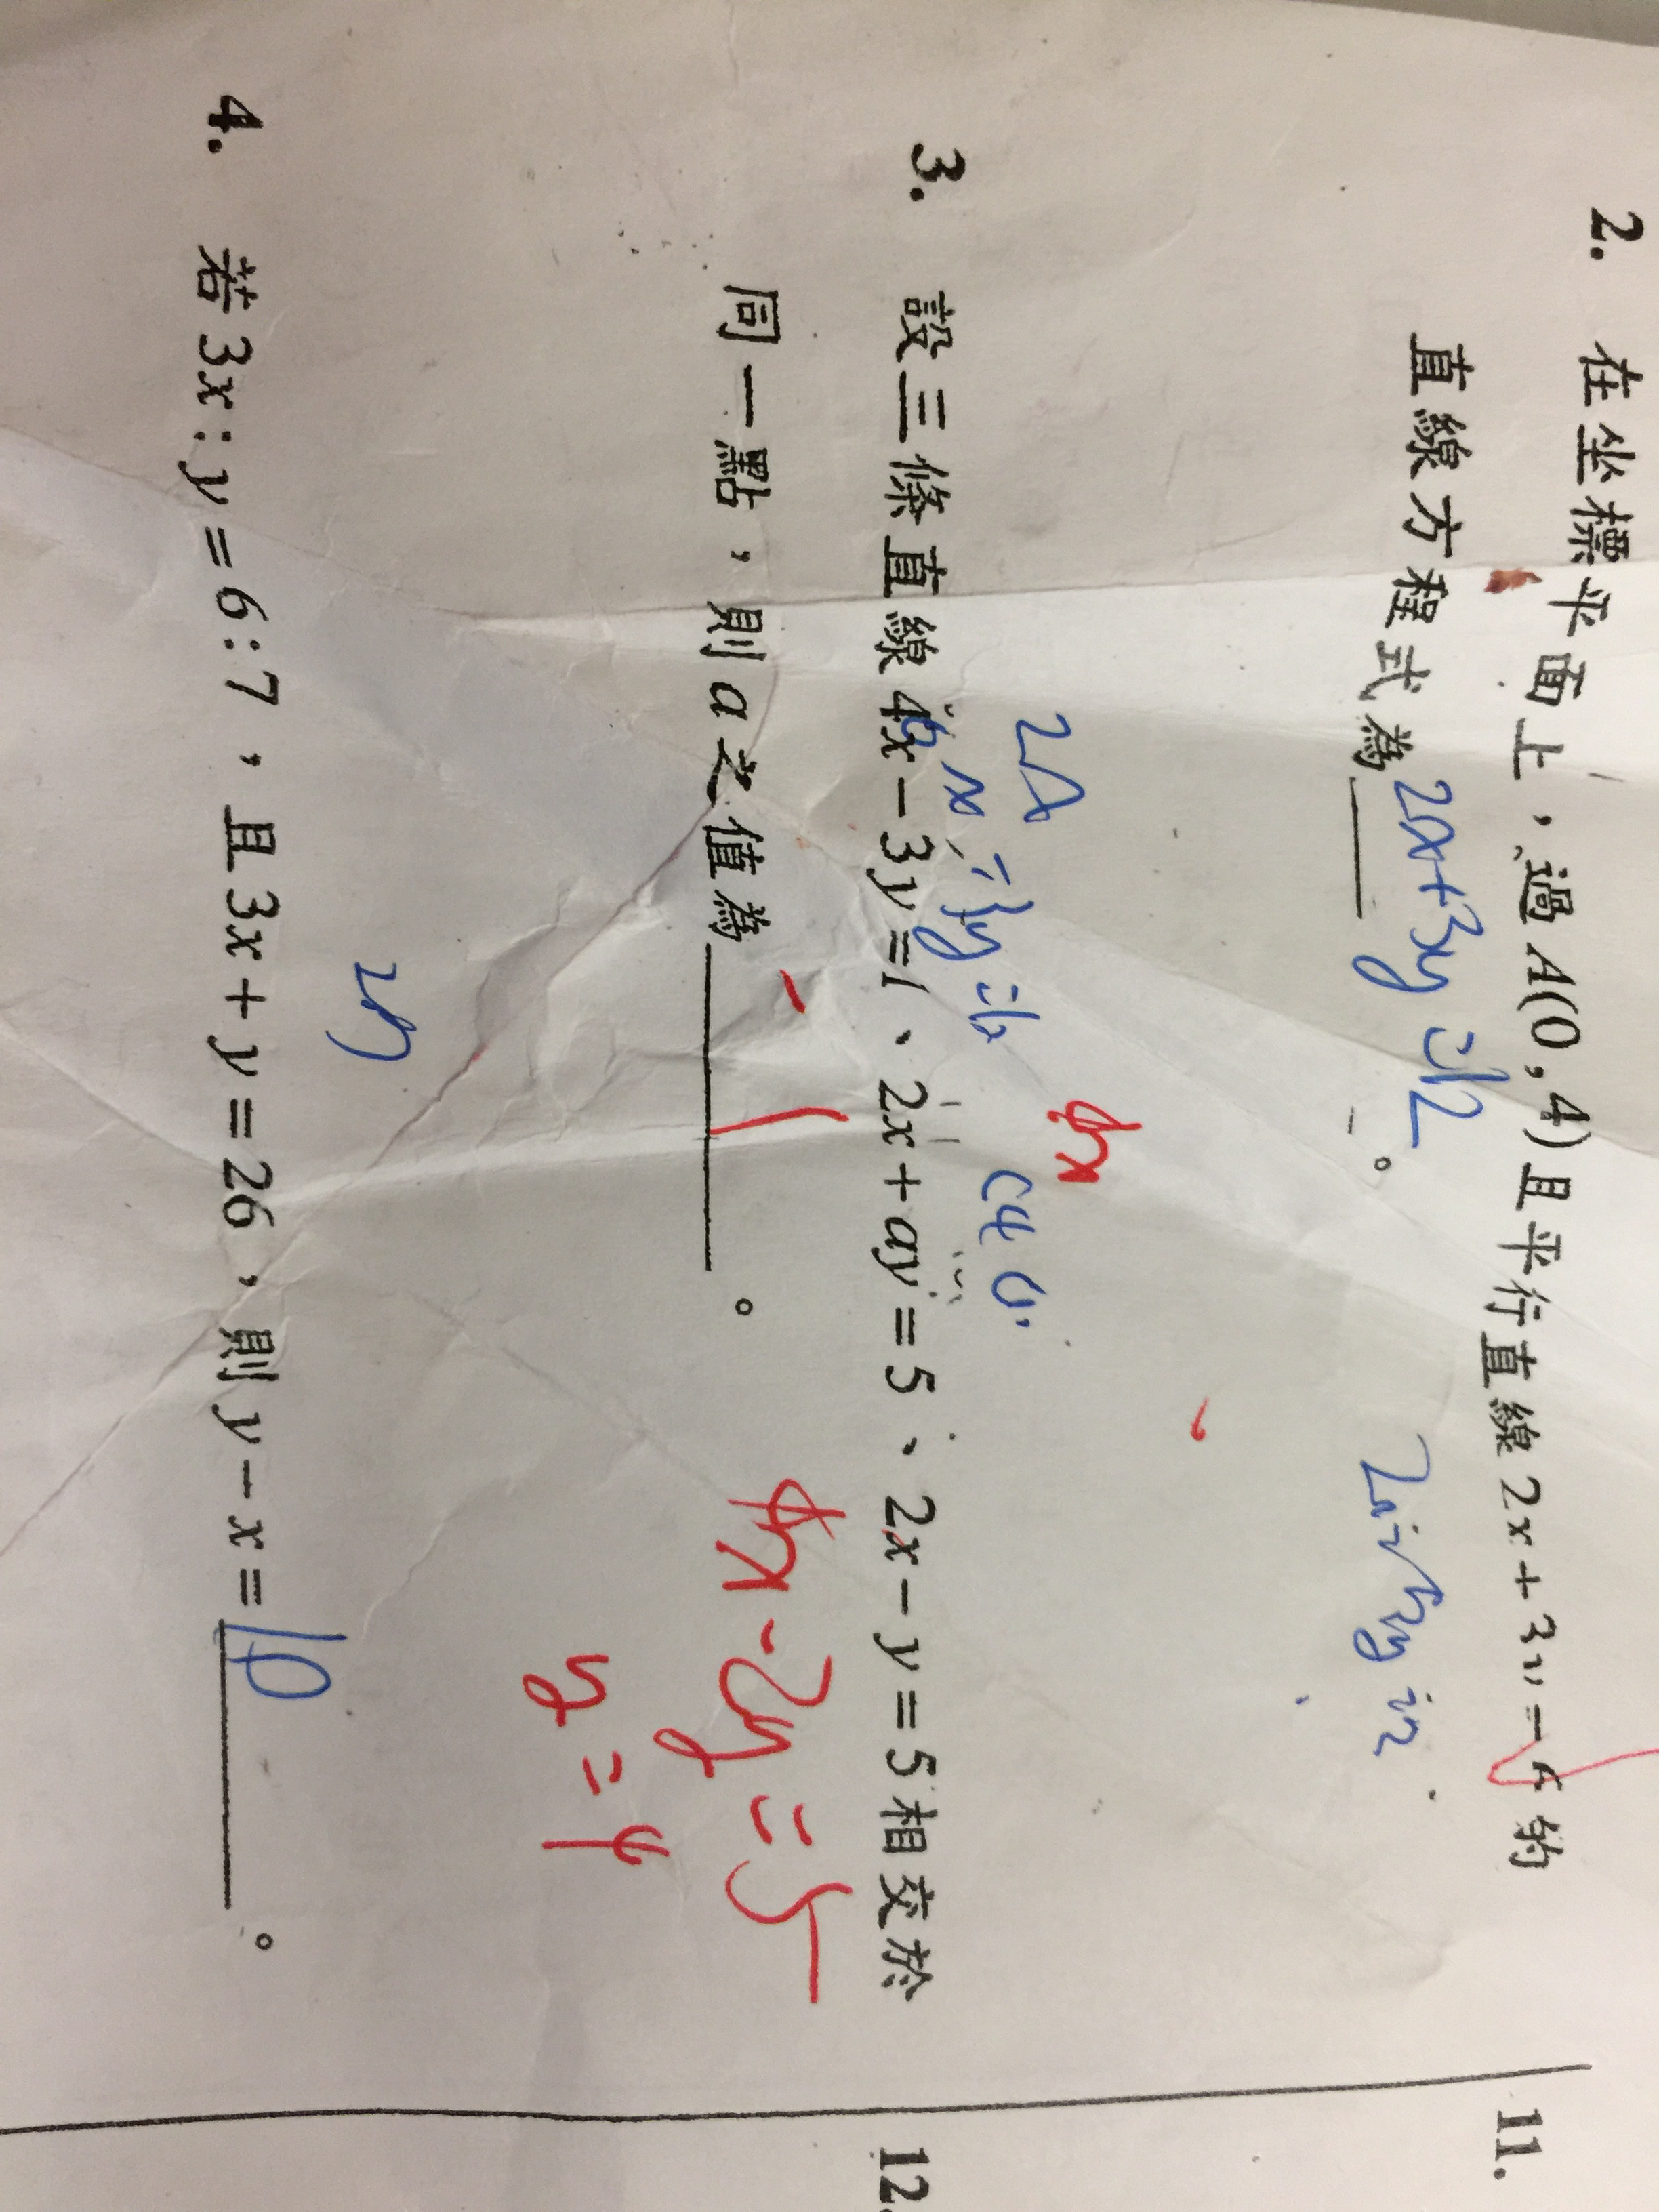 2. 在坐標平面上，過A(0,4)且平行直線2x+3y=-6的
直線方程式為 2x+3y=12 。
2x
4x
3. 設三條直線4x-3y=1、2x+ay=5、2x-y=5相交於
同一點，則a之值為 -1 。
4x-2y=5
y=4
4. 若3x:y=6:7，且3x+y=26，則y-x= 10 。
11.
12.